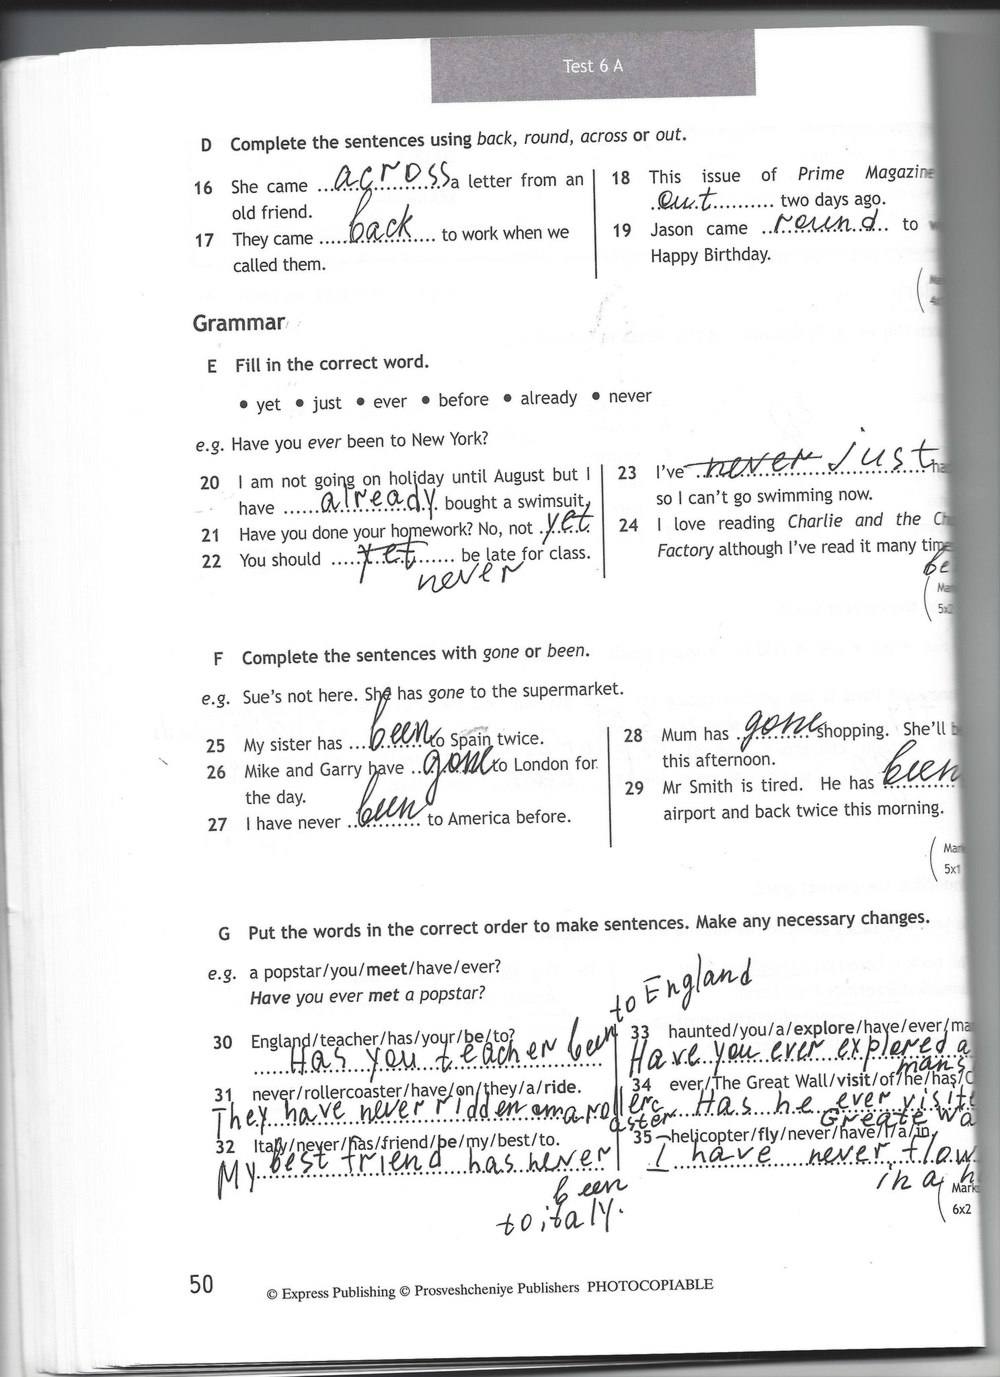 Test 6 A
D Complete the sentences using back, round, across or out.
16 She came ...across...a letter from an
old friend.
17 They came .....back.... to work when we
called them.
18 This issue of Prime Magazine
.out.......... two days ago.
19 Jason came ..round.. to
Happy Birthday.
Grammar
E Fill in the correct word.
• yet • just • ever • before • already • never
e.g. Have you ever been to New York?
20 I am not going on holiday until August but I
have ......already. bought a swimsuit.
21 Have you done your homework? No, not .yet.
22 You should .....yet...... be late for class.
never
23 I've ..never just
so I can't go swimming now.
24 I love reading Charlie and the
Factory although I've read it many time
be
5x2
F Complete the sentences with gone or been.
e.g. Sue's not here. She has gone to the supermarket.
25 My sister has ...been...to Spain twice.
26 Mike and Garry have ..gone..to London for
the day.
27 I have never ..been.... to America before.
28 Mum has .gone.shopping. She'll
this afternoon.
29 Mr Smith is tired. He has been
airport and back twice this morning.
Mark
5x1
G Put the words in the correct order to make sentences. Make any necessary changes.
e.g. a popstar/you/meet/have/ever?
Have you ever met a popstar?
to England
30 England/teacher/has/your/be/to?
Has you teacher been
31 never/rollercoaster/have/on/they/a/ride.
They have never ridden on a rollerc
oaster
32 Italy/never/has/friend/be/my/best/to.
My best friend has never
been
to italy.
33 haunted/you/a/explore/have/ever/ma
Have you ever explored a
mans
34 ever/The Great Wall/visit/of/he/has/C
Has he ever visite
Greate Wa
35 helicopter/fly/never/have/I/a/in.
I have never flow
in a h
Mark
6x2
50
© Express Publishing © Prosveshcheniye Publishers PHOTOCOPIABLE